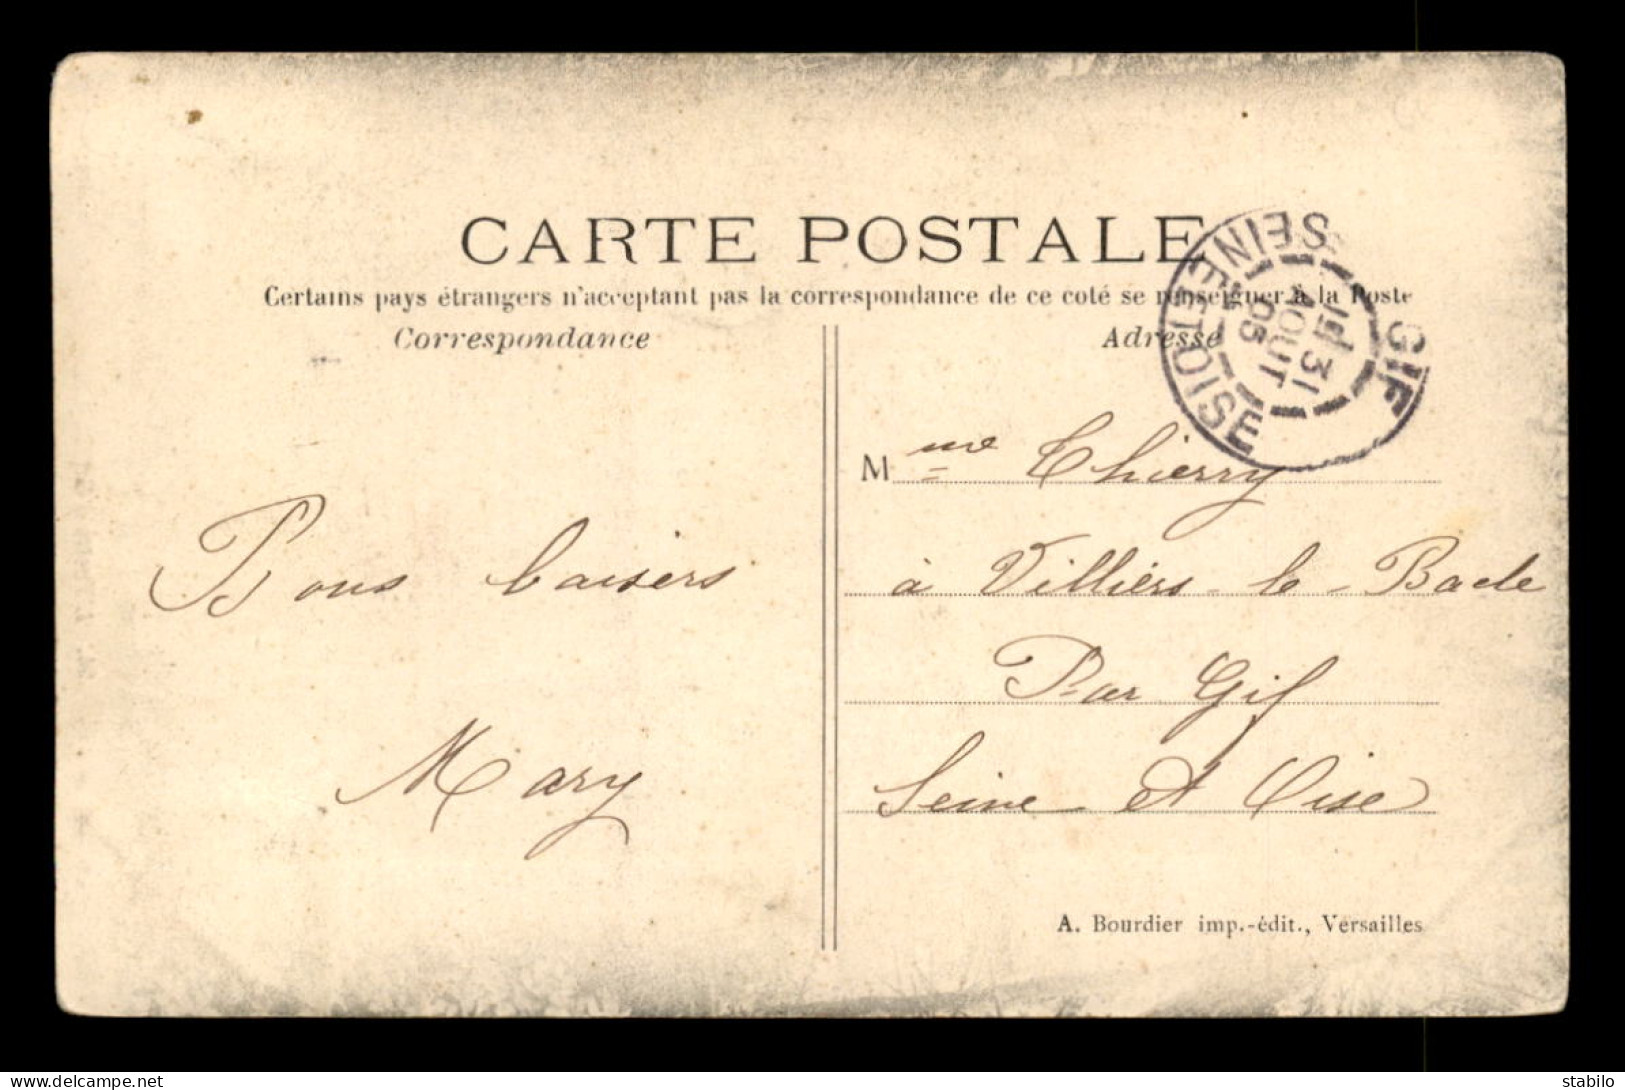 CARTE POSTALE
Certains pays étrangers n'acceptant pas la correspondance de ce coté se renseigner à la Poste
Correspondance
Adresse
SEINE-ET-OISE
GIF
31
AOUT
05
Mme Thierry
à Villiers-le-Bacle
Par Gif
Seine et Oise
Bons baisers
Mary
A. Bourdier imp.-édit., Versailles
delcampe.net
stabilo